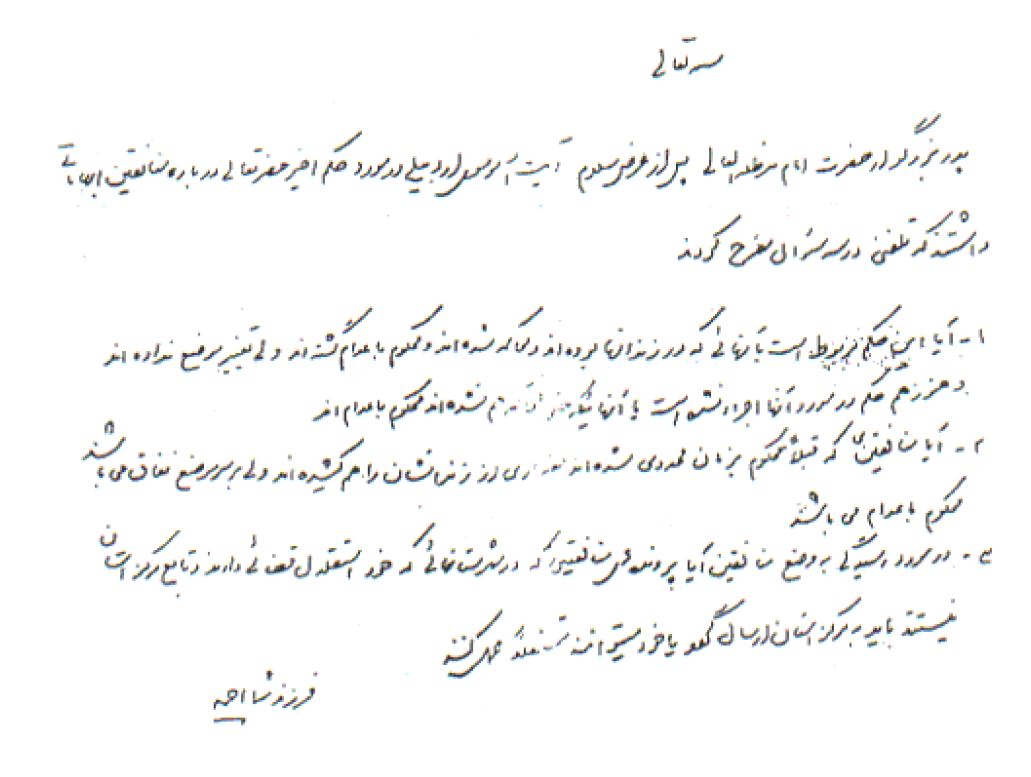 بسمه تعالی
پدر بزرگوار حضرت امام مدظله العالی پس از عرض سلام آیت الله موسوی اردبیلی در مورد حکم اخیر حضرتعالی درباره منافقین ابهاماتی
داشتند که تلفنی در سه سؤال مطرح کردند
۱- آیا این حکم مربوط است بآنهائی که در زندانها بوده اند و محاکمه شده اند و محکوم باعدام گشته اند ولی تغییر موضع نداده اند
و هنوز هم حکم در مورد آنها اجراء نشده است یا آنهائیکه حتی محاکمه هم نشده اند محکوم باعدام اند
۲- آیا منافقینی که قبلاً محکوم بزندان محدودی شده اند مقداری از زندانشان را هم کشیده اند ولی بر سر موضع نفاق می باشند
محکوم باعدام می باشند
۳- در مورد رسیدگی به وضع منافقین آیا پرونده های منافقینی که در شهرستانهائی که خود استقلال قضائی دارند و تابع مرکز استان
نیستند باید به مرکز استان ارسال گردد یا خود میتوانند مستقلاً عمل کنند
فرزند شما احمد